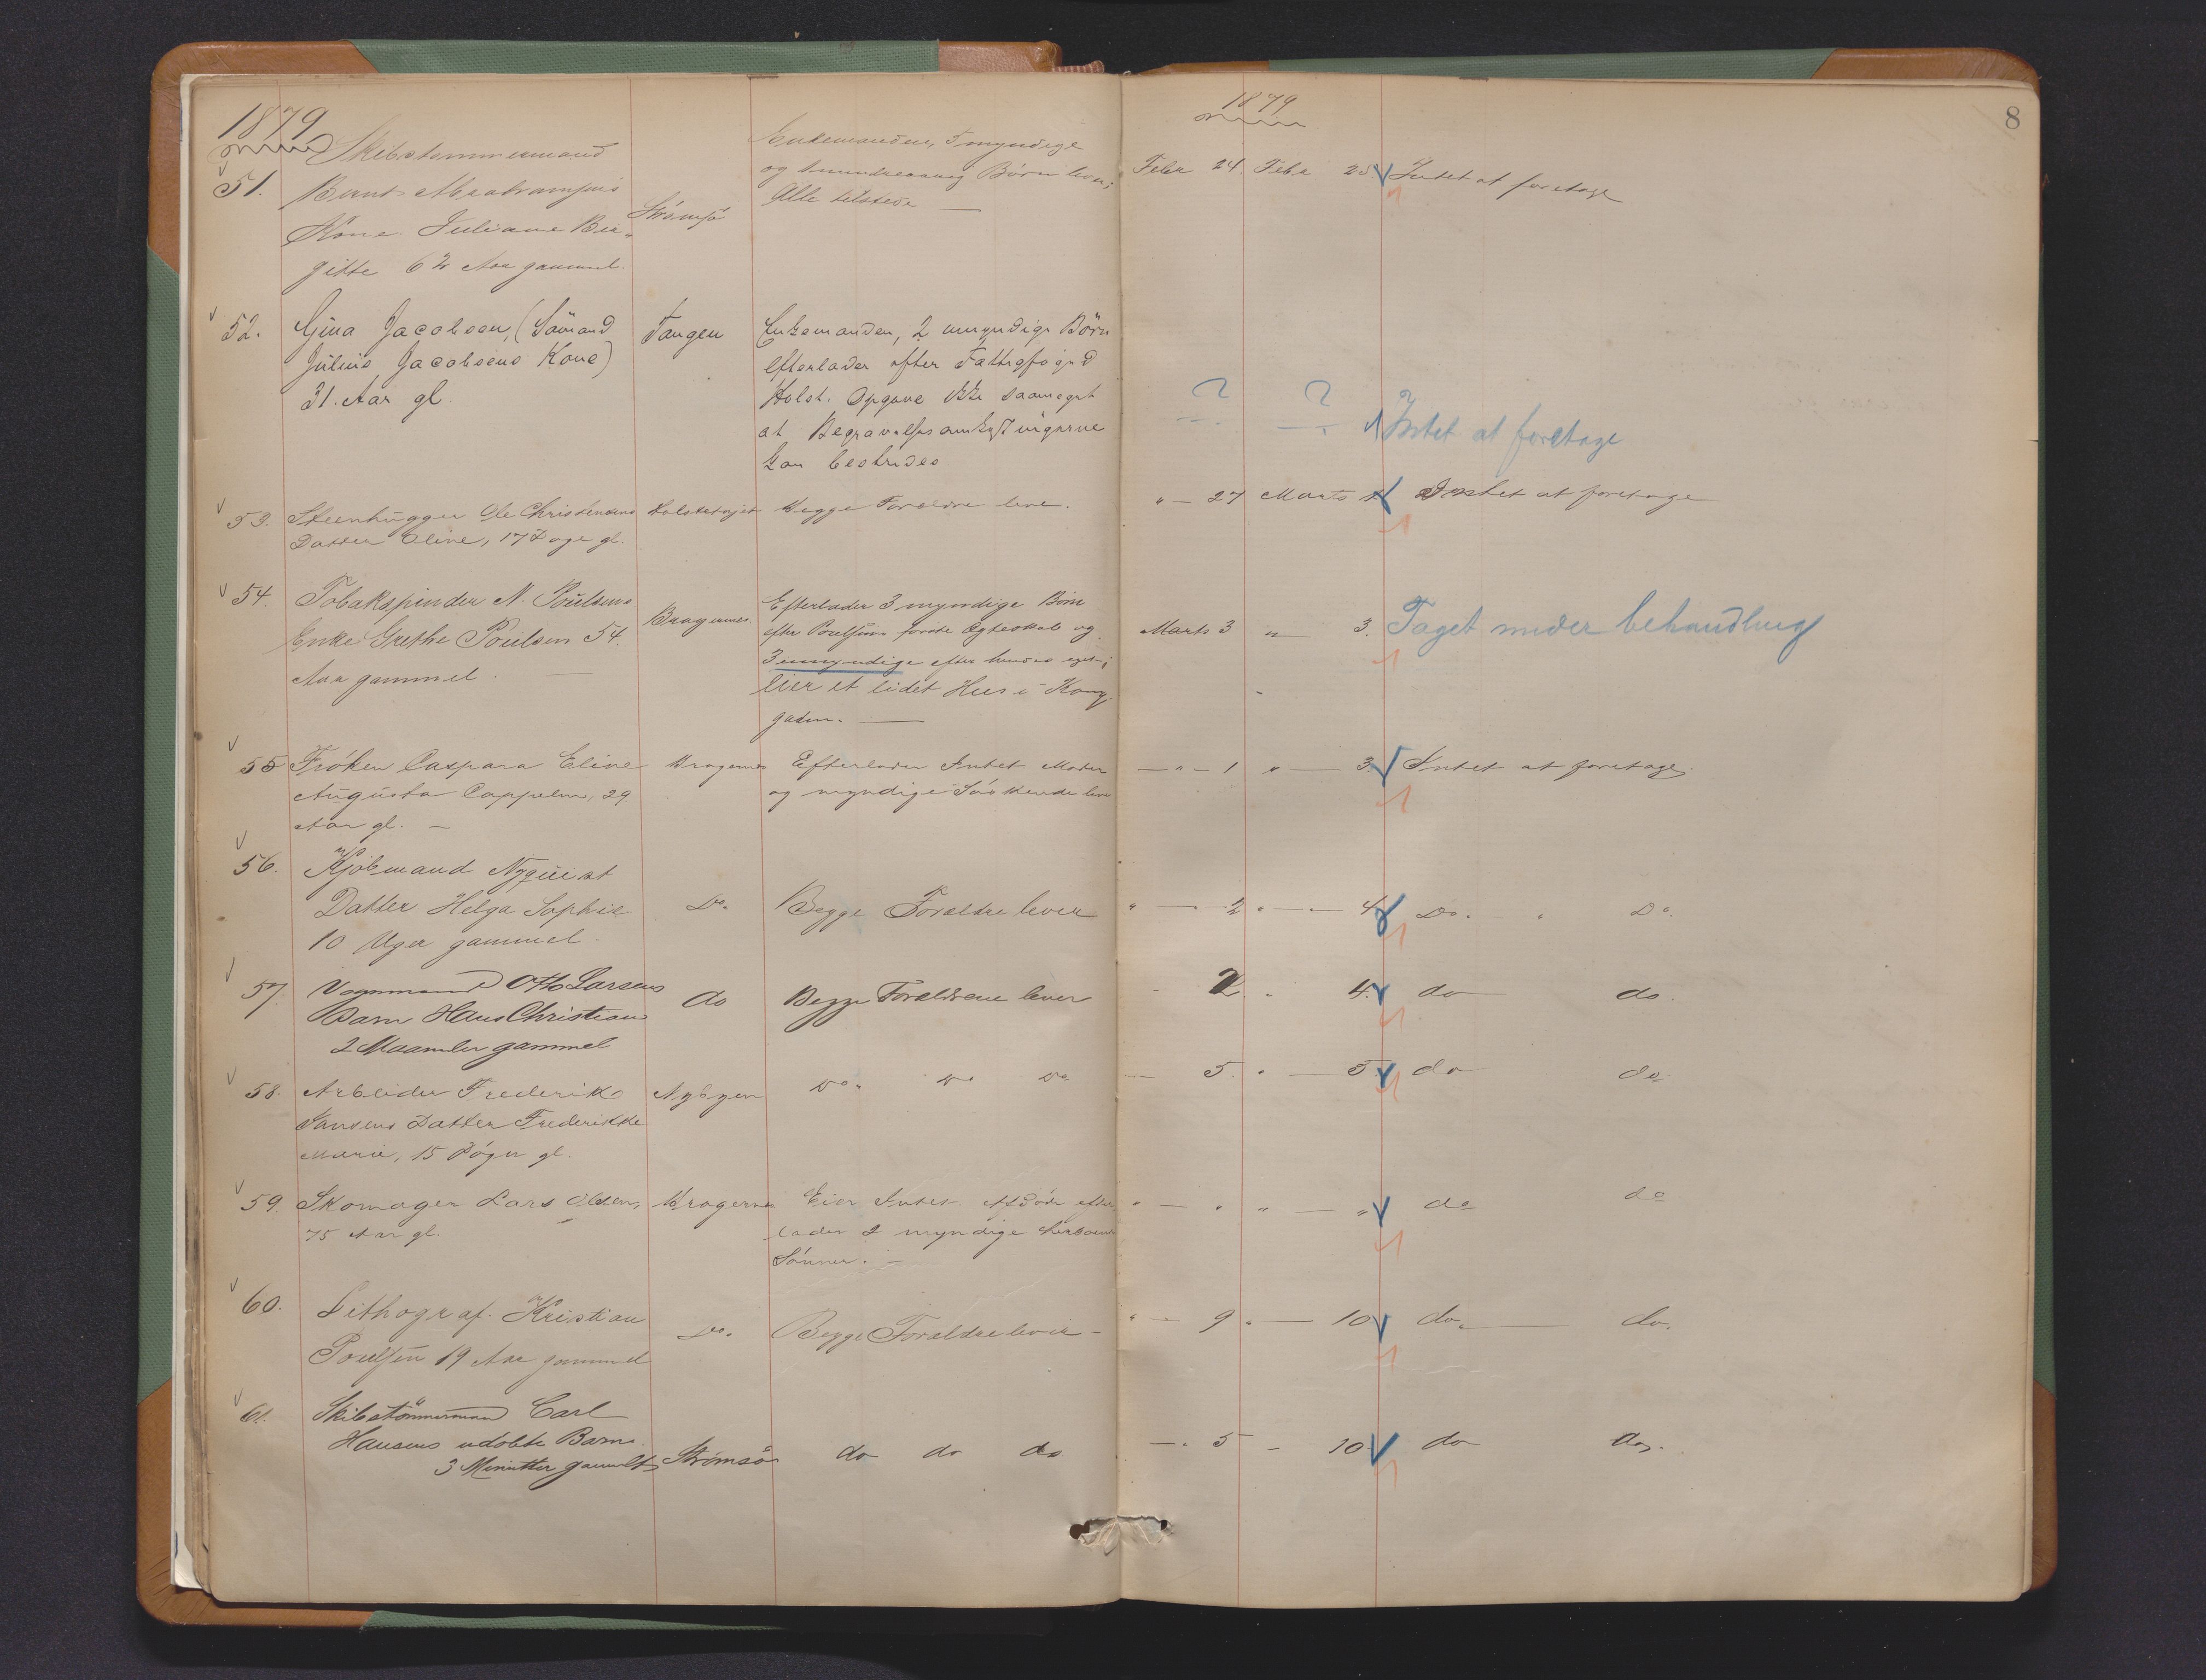 1879
Skibstømmermand
51. Bernt Abrahamsens
Kone Juliane Bir-
gitte 62 Aar gammel.
Strømsø
Enkemanden, myndige
og Børn lever;
Alle tilstede —
52. Gina Jacobsen, (Sömand
Julius Jacobsens Kone)
31 Aar gl.
Tangen
Enkemanden, 2 umyndige Börn
efterlader efter Fattigfogd
Holst. Opgave ikke saameget
at Begravelsesomkostningerne
kan bestrides
53. Steenhugger Ole Christensens
Datter Oline, 17 Dage gl.
Begge Forældre leve.
54. Tobakspinder N. Poulsens
Enke Grethe Poulsen 54.
Aar gammel. —
Bragernes
Efterlader 3 myndige Börn
efter Poulsens første Ægteskab og
3 umyndige efter hendes eget;
Eier et lidet Hus i Kong-
gaden. —
55 Fröken Caspara Eline
Augusta Cappelen, 29.
Aar gl. —
Bragernes
Efterlader Intet Moder
og myndige Söskende leve
56. Kjöbmand Nyquist
Datter Helga Sophie
10 Uger gammel.
Do.
Begge Forældre lever
57. Vognmand Otto Larsens
Barn Hans Christian
2 Maaneder gammel
do
Begge Forældrene lever
58. Arbeider Frederik
Hansens Datter Frederikke
Marie, 15 Döger gl.
Nybyen
Do. Do Do
59. Skomager Lars Olsen,
75 Aar gl.
Bragernes
Eier Intet Afdöde efter
lader 2 myndige
Sönner. —
60. Lithograf. Kristian
Poulsen 19 Aar gammel
Do.
Begge Forældre lever —
61. Skibstömmermand Carl
Hansens udöbte Barn
3 Minutter gammelt
Strömsö
do do do
1879
8
Febr 24. Febr 25 Intet at foretage
? ? Intet at foretage
" — 27 Marts 1 Intet at foretage
Marts 3 " 3. Taget under behandling
— " — 1 " — 3. Intet at foretage.
" — 2 " — 4. Do. — " Do.
- 2. " 4. do do.
— 5. " — 5. do do.
" — " " — " do do
" — 9 " — 10 do. — do.
— " 5 — 10 do do.